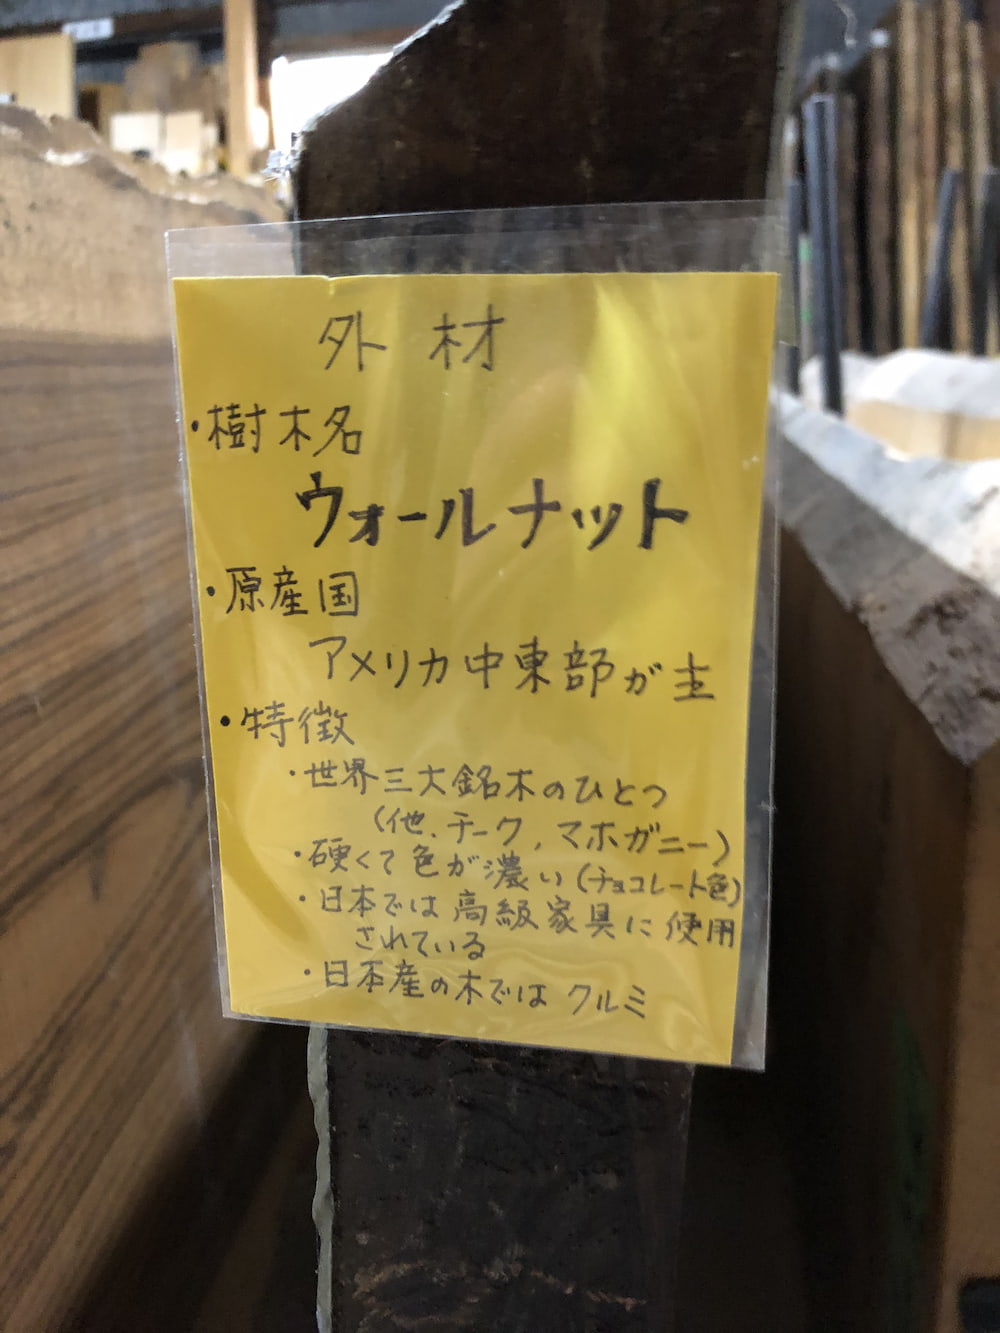 外材
・樹木名
ウォールナット
・原産国
アメリカ中東部が主
・特徴
・世界三大銘木のひとつ
(他、チーク、マホガニー)
・硬くて色が濃い(チョコレート色)
・日本では高級家具に使用
されている
・日本産の木ではクルミ